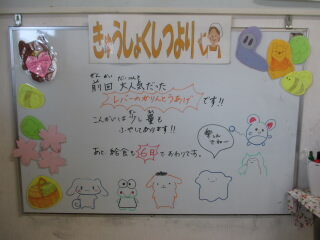 きゅうしょくしつより
ぜん かい だい にんき
前回 大人気だった
レバーのかりんとうあげ です!!
こんかいは 少し 量も
ふやしてあります!!
あと、給食も 6日で おわりです。